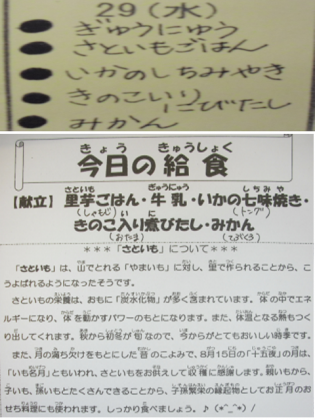 29(水)
ぎゅうにゅう
さといもごはん
いかのしちみやき
きのこいり
にびたし
みかん
きょう きゅうしょく
今日の給食
さといも ぎゅうにゅう しちみや
【献立】里芋ごはん・牛乳・いかの七味焼き・
(しゃもじ) (トング)
い に
きのこ入り煮びたし・みかん
(おたま) (てぶくろ)
***「さといも」について***
「さといも」は、山でとれる「やまいも」に対し、里で作られることから、こ
うよばれるようになったそうです。
さといもの栄養は、おもに「炭水化物」が多く含まれています。体の中でエネ
ルギーになり、体を動かすパワーのもとになります。また、体温となる熱もつく
り出してくれます。秋から初冬が旬なので、今からがとてもおいしい時季です。
また、月の満ち欠けをもとにした昔のこよみで、8月15日の「十五夜」の月は、
「いも名月」ともいわれ、さといもをお供えして収穫に感謝します。親いもから、
子いも、孫いもとたくさんできることから、子孫繁栄の縁起物としてお正月のお
せち料理にも使われます。しっかり食べましょう。♪(*^^*)/